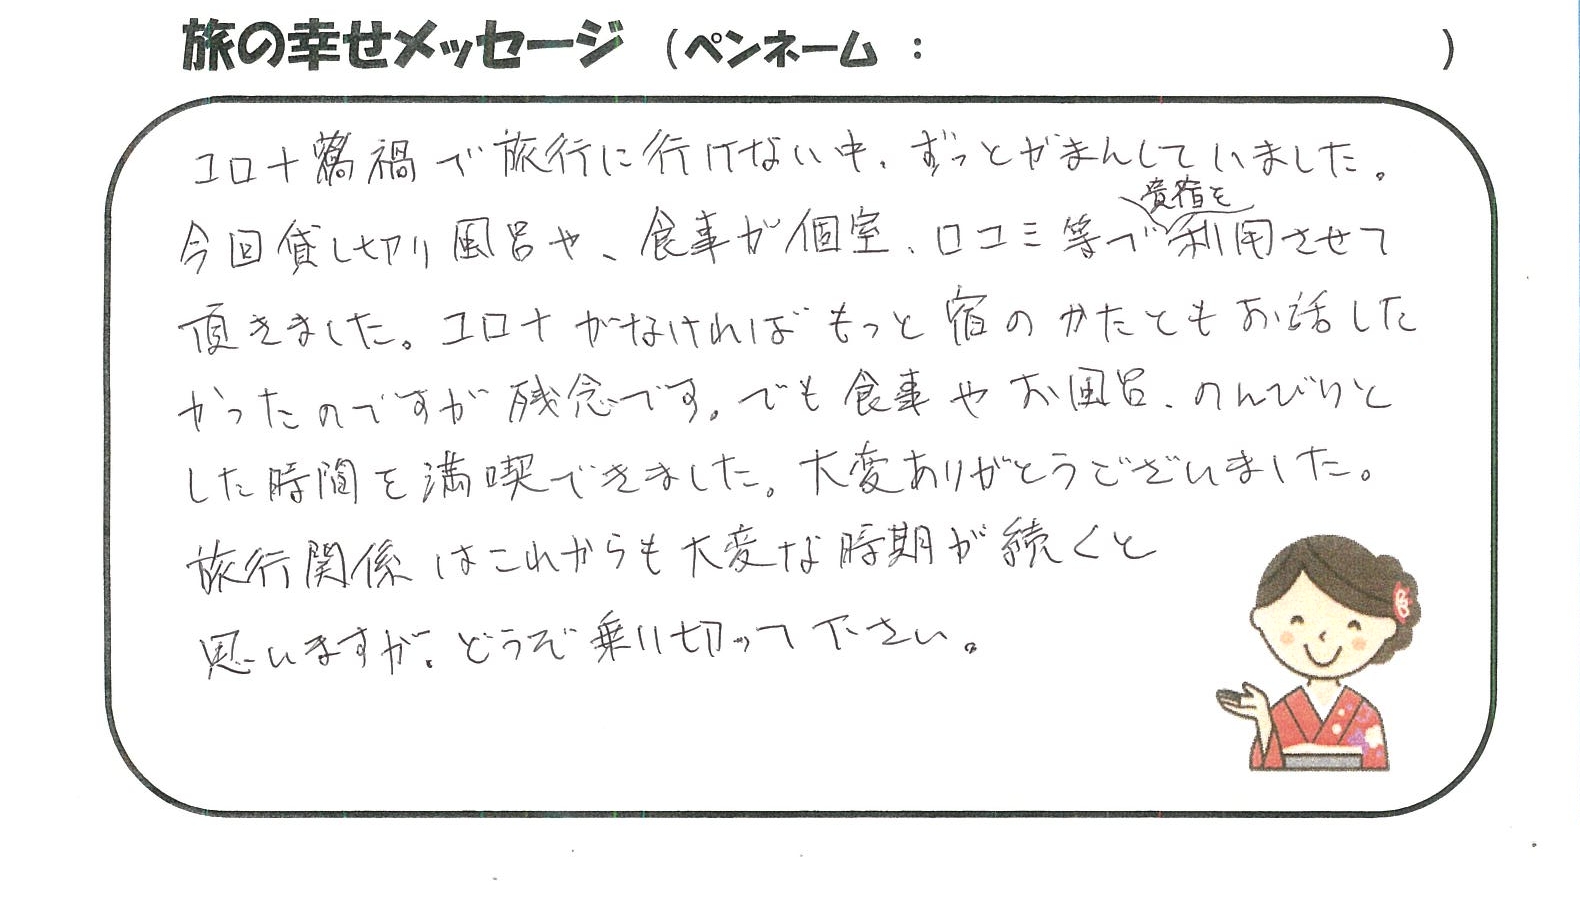 旅の幸せメッセージ （ペンネーム： ）
コロナ禍で旅行に行けない中、ずっとがまんしていました。
今回貸し切り風呂や、食事が個室、口コミ等で貴宿を利用させて
頂きました。コロナがなければもっと宿のかたともお話した
かったのですが残念です。でも食事やお風呂、のんびりと
した時間を満喫できました。大変ありがとうございました。
旅行関係はこれからも大変な時期が続くと
思いますが、どうぞ乗り切って下さい。